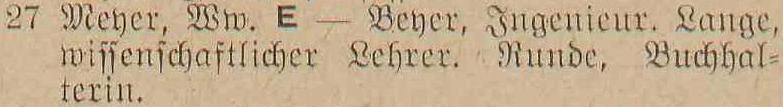 27 Meyer, Ww. E — Beyer, Ingenieur. Lange,
wissenschaftlicher Lehrer. Runde, Buchhal-
terin.